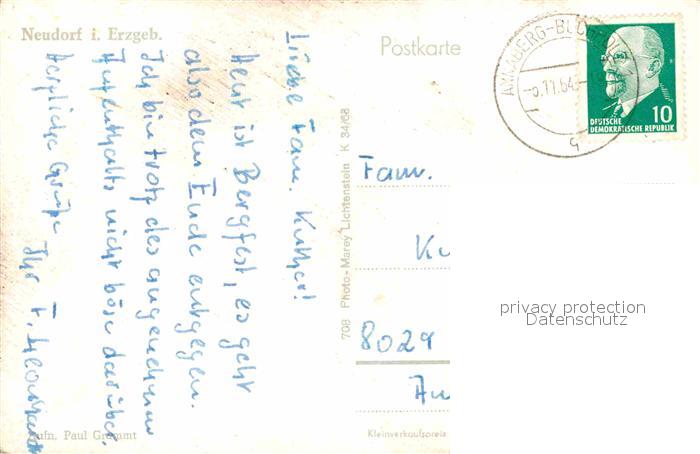 Neudorf i. Erzgeb.
Postkarte
ANNABERG-BUCHHOLZ
11.64
10
DEUTSCHE
DEMOKRATISCHE REPUBLIK
Liebe Fam.
Heut ist Bergfest, es geht
also dem Ende entgegen.
Ich bin trotz des angenehmen
Aufenthalts nicht böse darüber.
Herzliche Grüße Ihr F.
708 Photo-Marey Lichtenstein K 34/68
Fam.
Ku
8029
Au
privacy protection
Datenschutz
Aufn. Paul Grammt
Kleinverkaufspreis